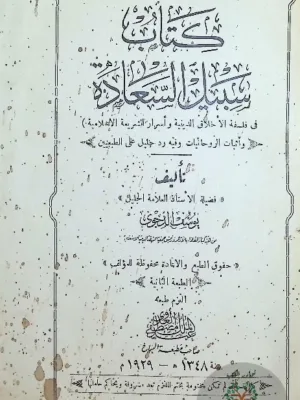 كتاب
سبيل السعادة
فى فلسفة الأخلاق الدينية وأسرار الشريعة الاسلامية
وأثبات الروحانيات وفيه رد جليل على الطبيعيين
تأليف
فضيلة الأستاذ العلامة الجليل
يوسف الدجوى
حقوق الطبع والاعادة محفوظة للمؤلف
الطبعة الثانية
التزم طبعه
سنة ١٣٤٨ هـ — ١٩٢٩ م